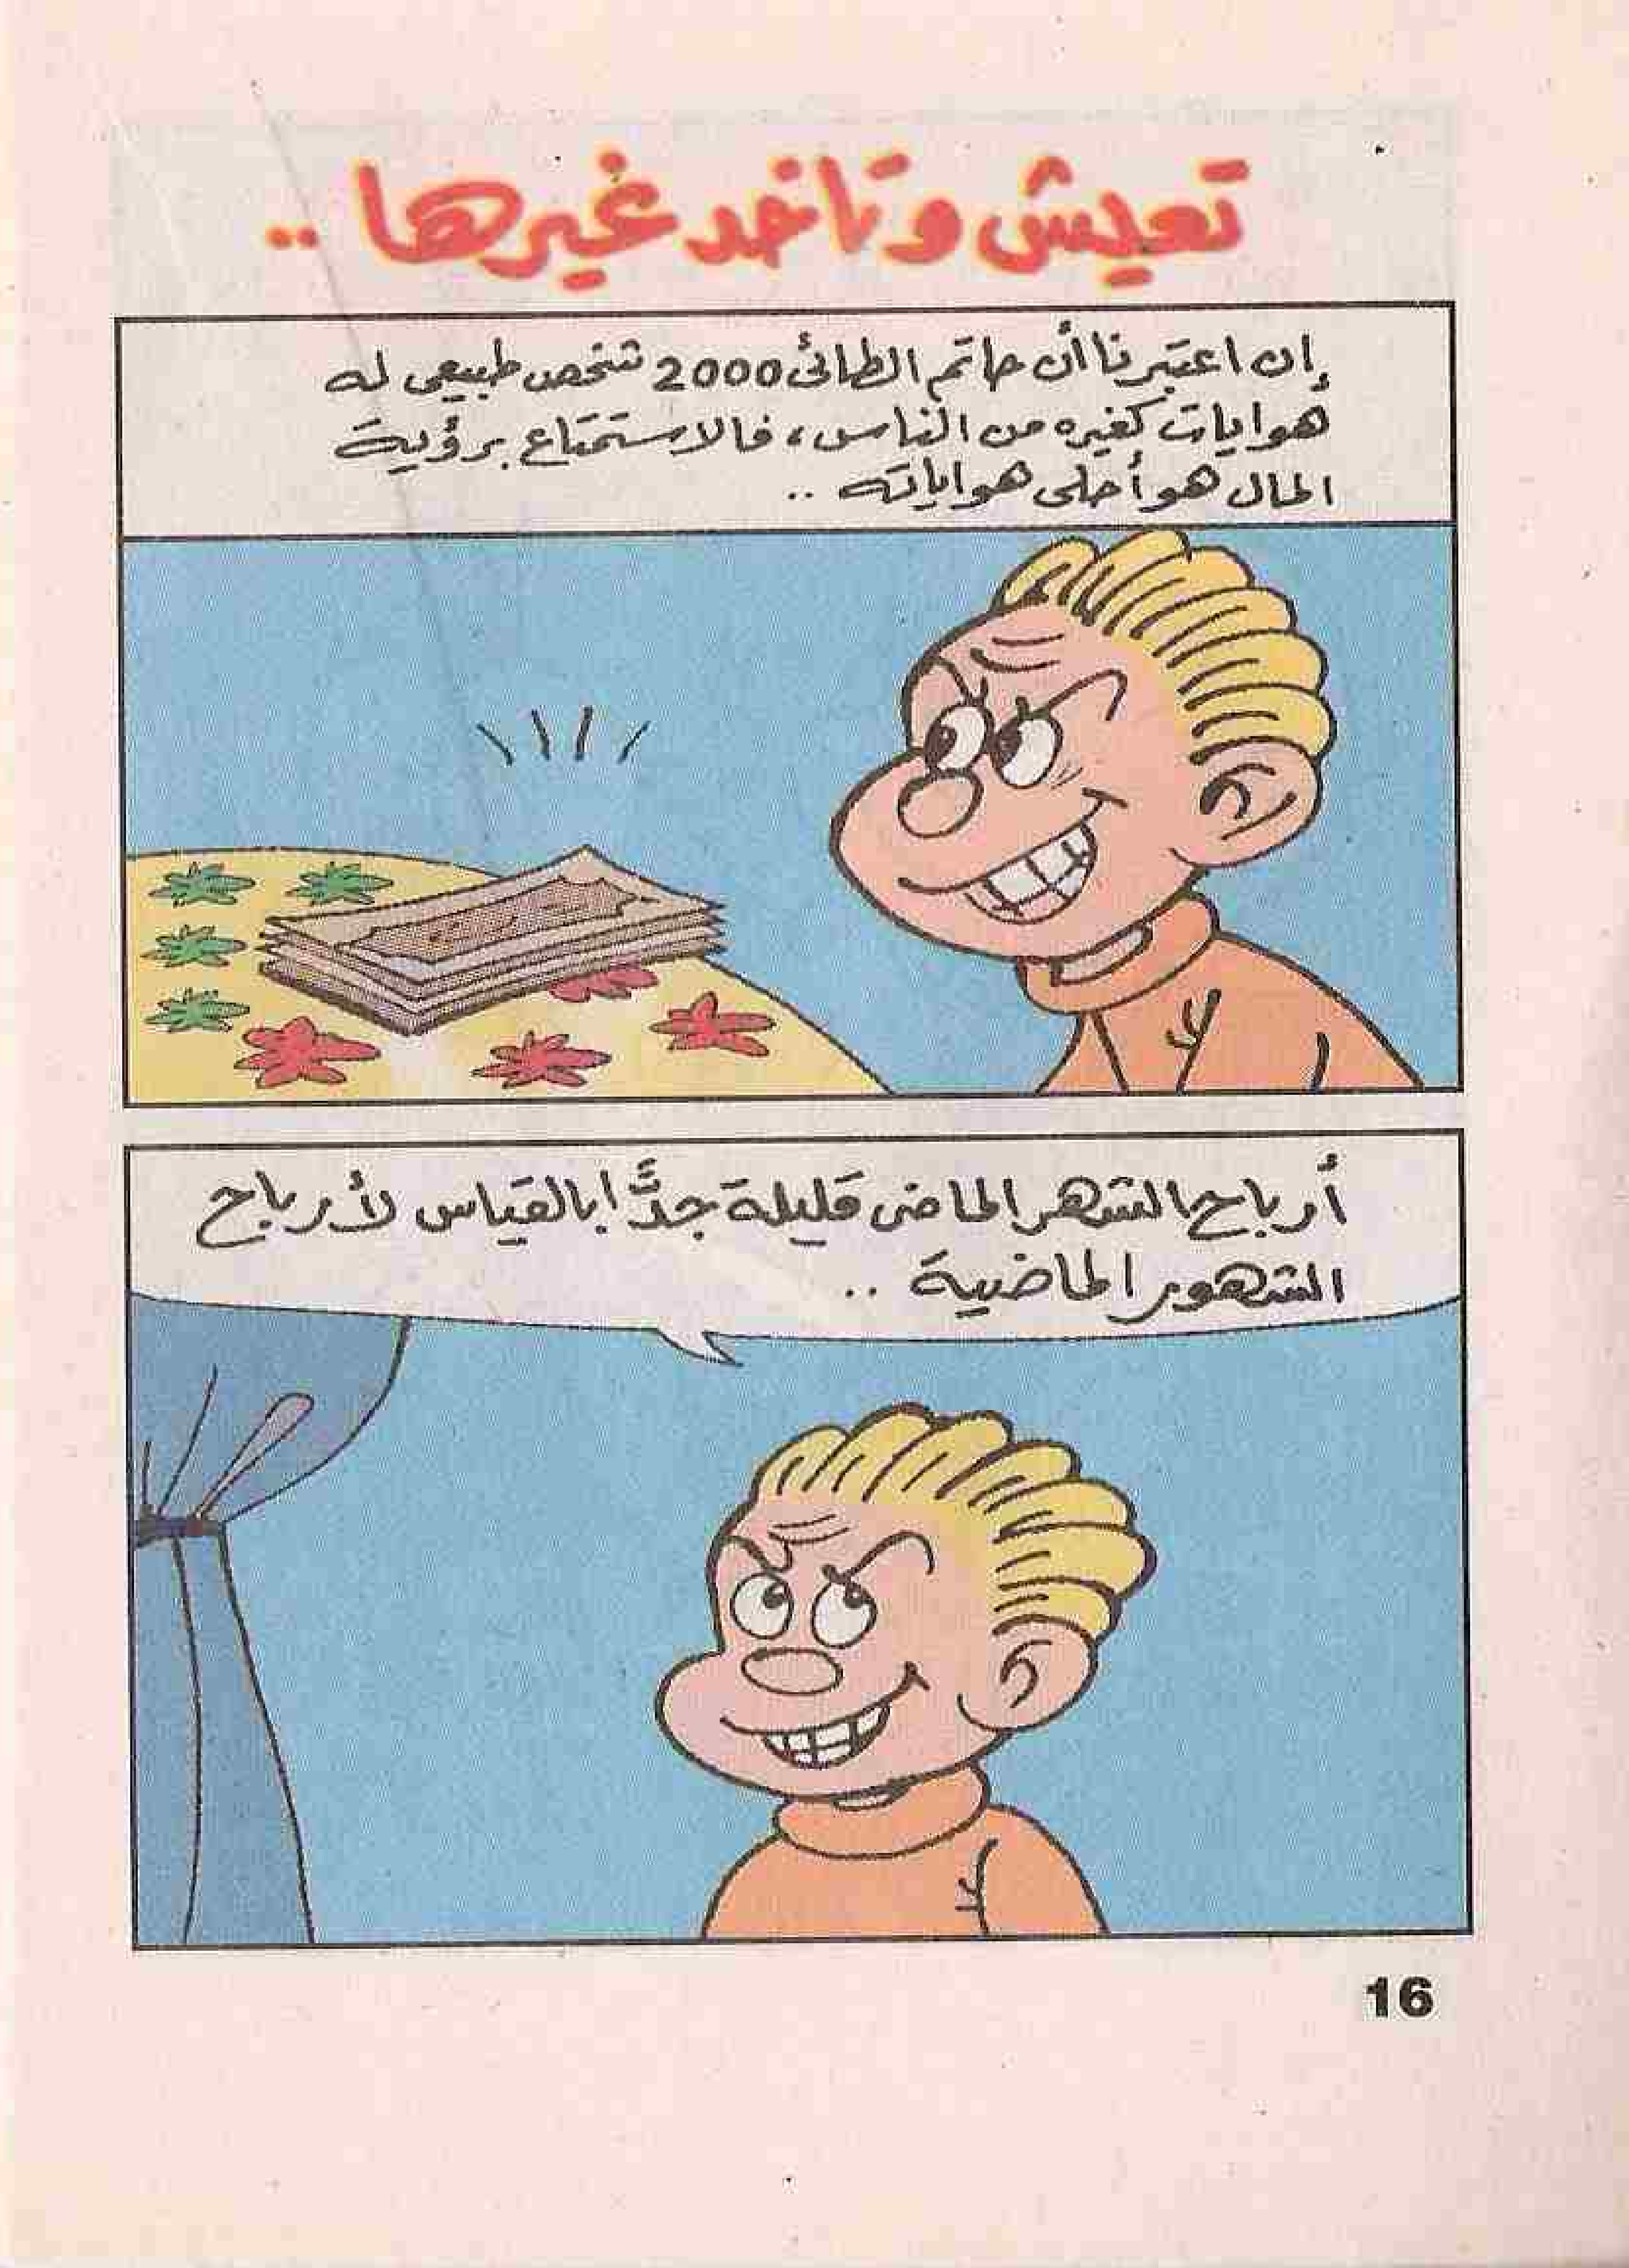 تعيش وتاخد غيرها ..
إن اعتبرنا أن حاتم الطائى 2000 شخص طبيعى له
هوايات كغيره من الناس، فالاستمتاع برؤية
المال هو أحلى هواياته ..
أرباح الشهر الماضى قليلة جدًّا بالقياس لأرباح
الشهور الماضية ..
16